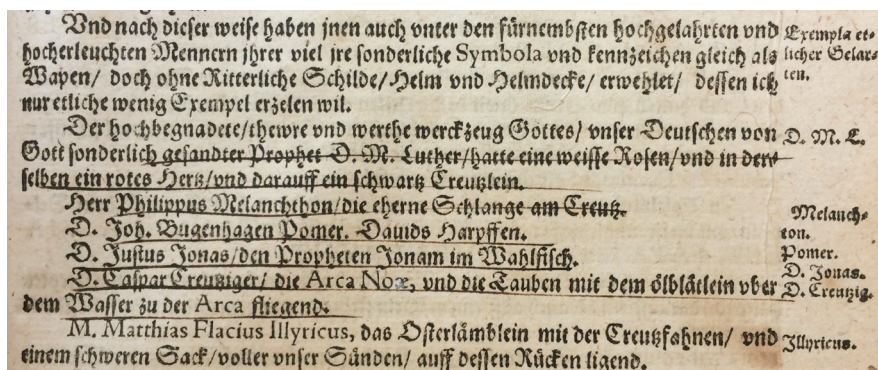 Vnd nach dieser weise haben jnen auch vnter den fürnembsten hochgelahrten vnd
hocherleuchten Mennern jhrer viel jre sonderliche Symbola vnd kennzeichen gleich als
Wapen/ doch ohne Ritterliche Schilde/ Helm vnd Helmdecke/ erwehlet/ dessen ich
nur etliche wenig Exempel erzelen wil.
Exempla et-
licher Gelar-
ten.
Der hochbegnadete/ thewre vnd werthe werckzeug Gottes/ vnser Deutschen von
Gott sonderlich gesandter Prophet D. M. Luther/ hatte eine weisse Rosen/ vnd in der-
selben ein rotes Hertz/ vnd darauff ein schwartz Creutzlein.
D. M. L.
Herr Philippus Melanchthon/ die eherne Schlange am Creutz.
Melanch-
ton.
D. Joh. Bugenhagen Pomer. Dauids Harpffen.
Pomer.
D. Justus Jonas/ den Propheten Jonam im Wahlfisch.
D. Jonas.
D. Caspar Creutziger/ die Arca Noæ, vnd die Tauben mit dem ölblätlein vber
dem Wasser zu der Arca fliegend.
D. Creutzig.
M. Matthias Flacius Illyricus, das Osterlämblein mit der Creutzfahnen/ vnd
einem schweren Sack/ voller vnser Sünden/ auff dessen Rücken ligend.
Illyricus.